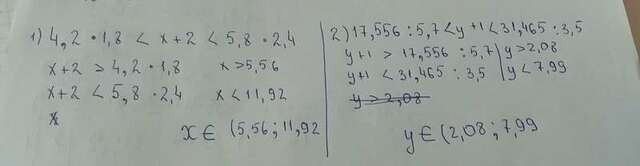 1) 4,2 * 1,8 < x+2 < 5,8 * 2,4
x+2 > 4,2 * 1,8 x>5,56
x+2 < 5,8 * 2,4 x<11,92
x ∈ (5,56 ; 11,92
2) 17,556 : 5,7 < y+1 < 31,465 : 3,5
y+1 > 17,556 : 5,7 | y>2,08
y+1 < 31,465 : 3,5 | y<7,99
y>2,08
y ∈ (2,08 ; 7,99